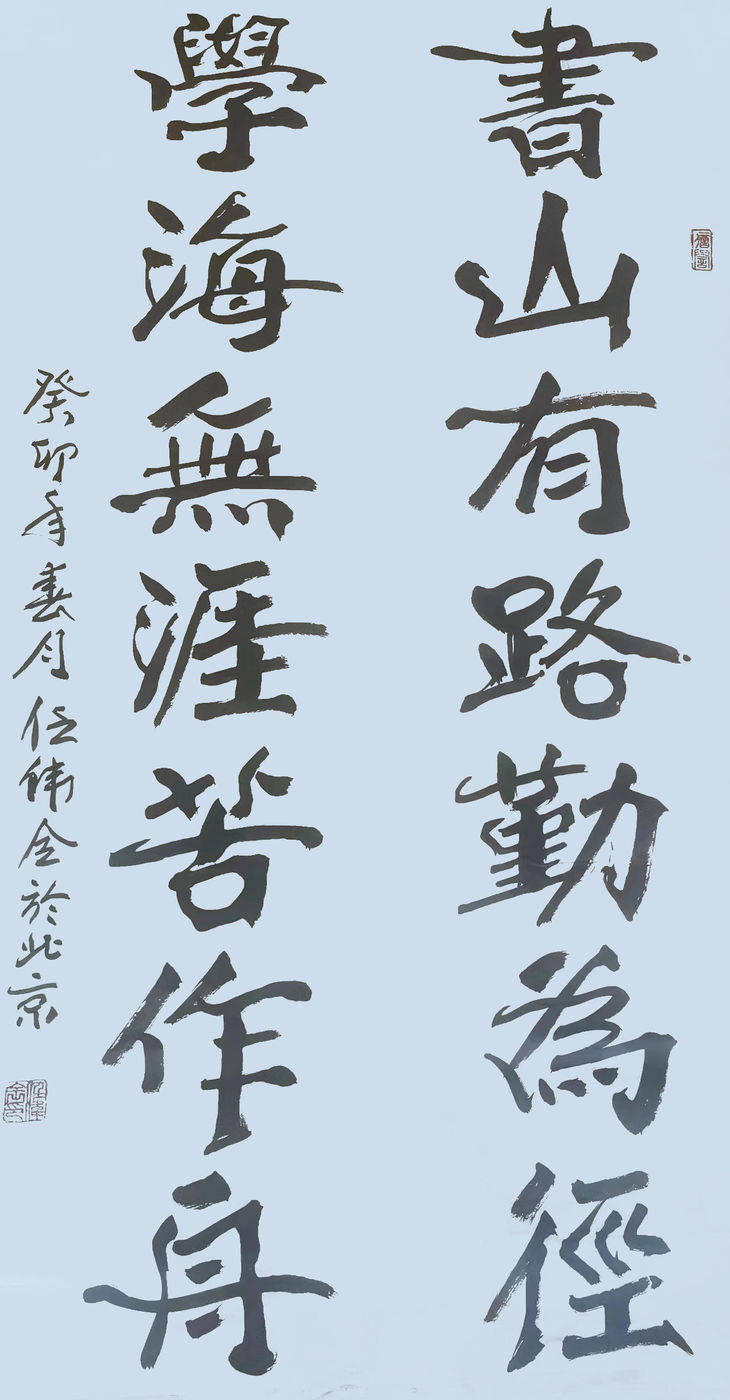 書山有路勤為徑
學海無涯苦作舟
癸卯年春月任偉金於北京